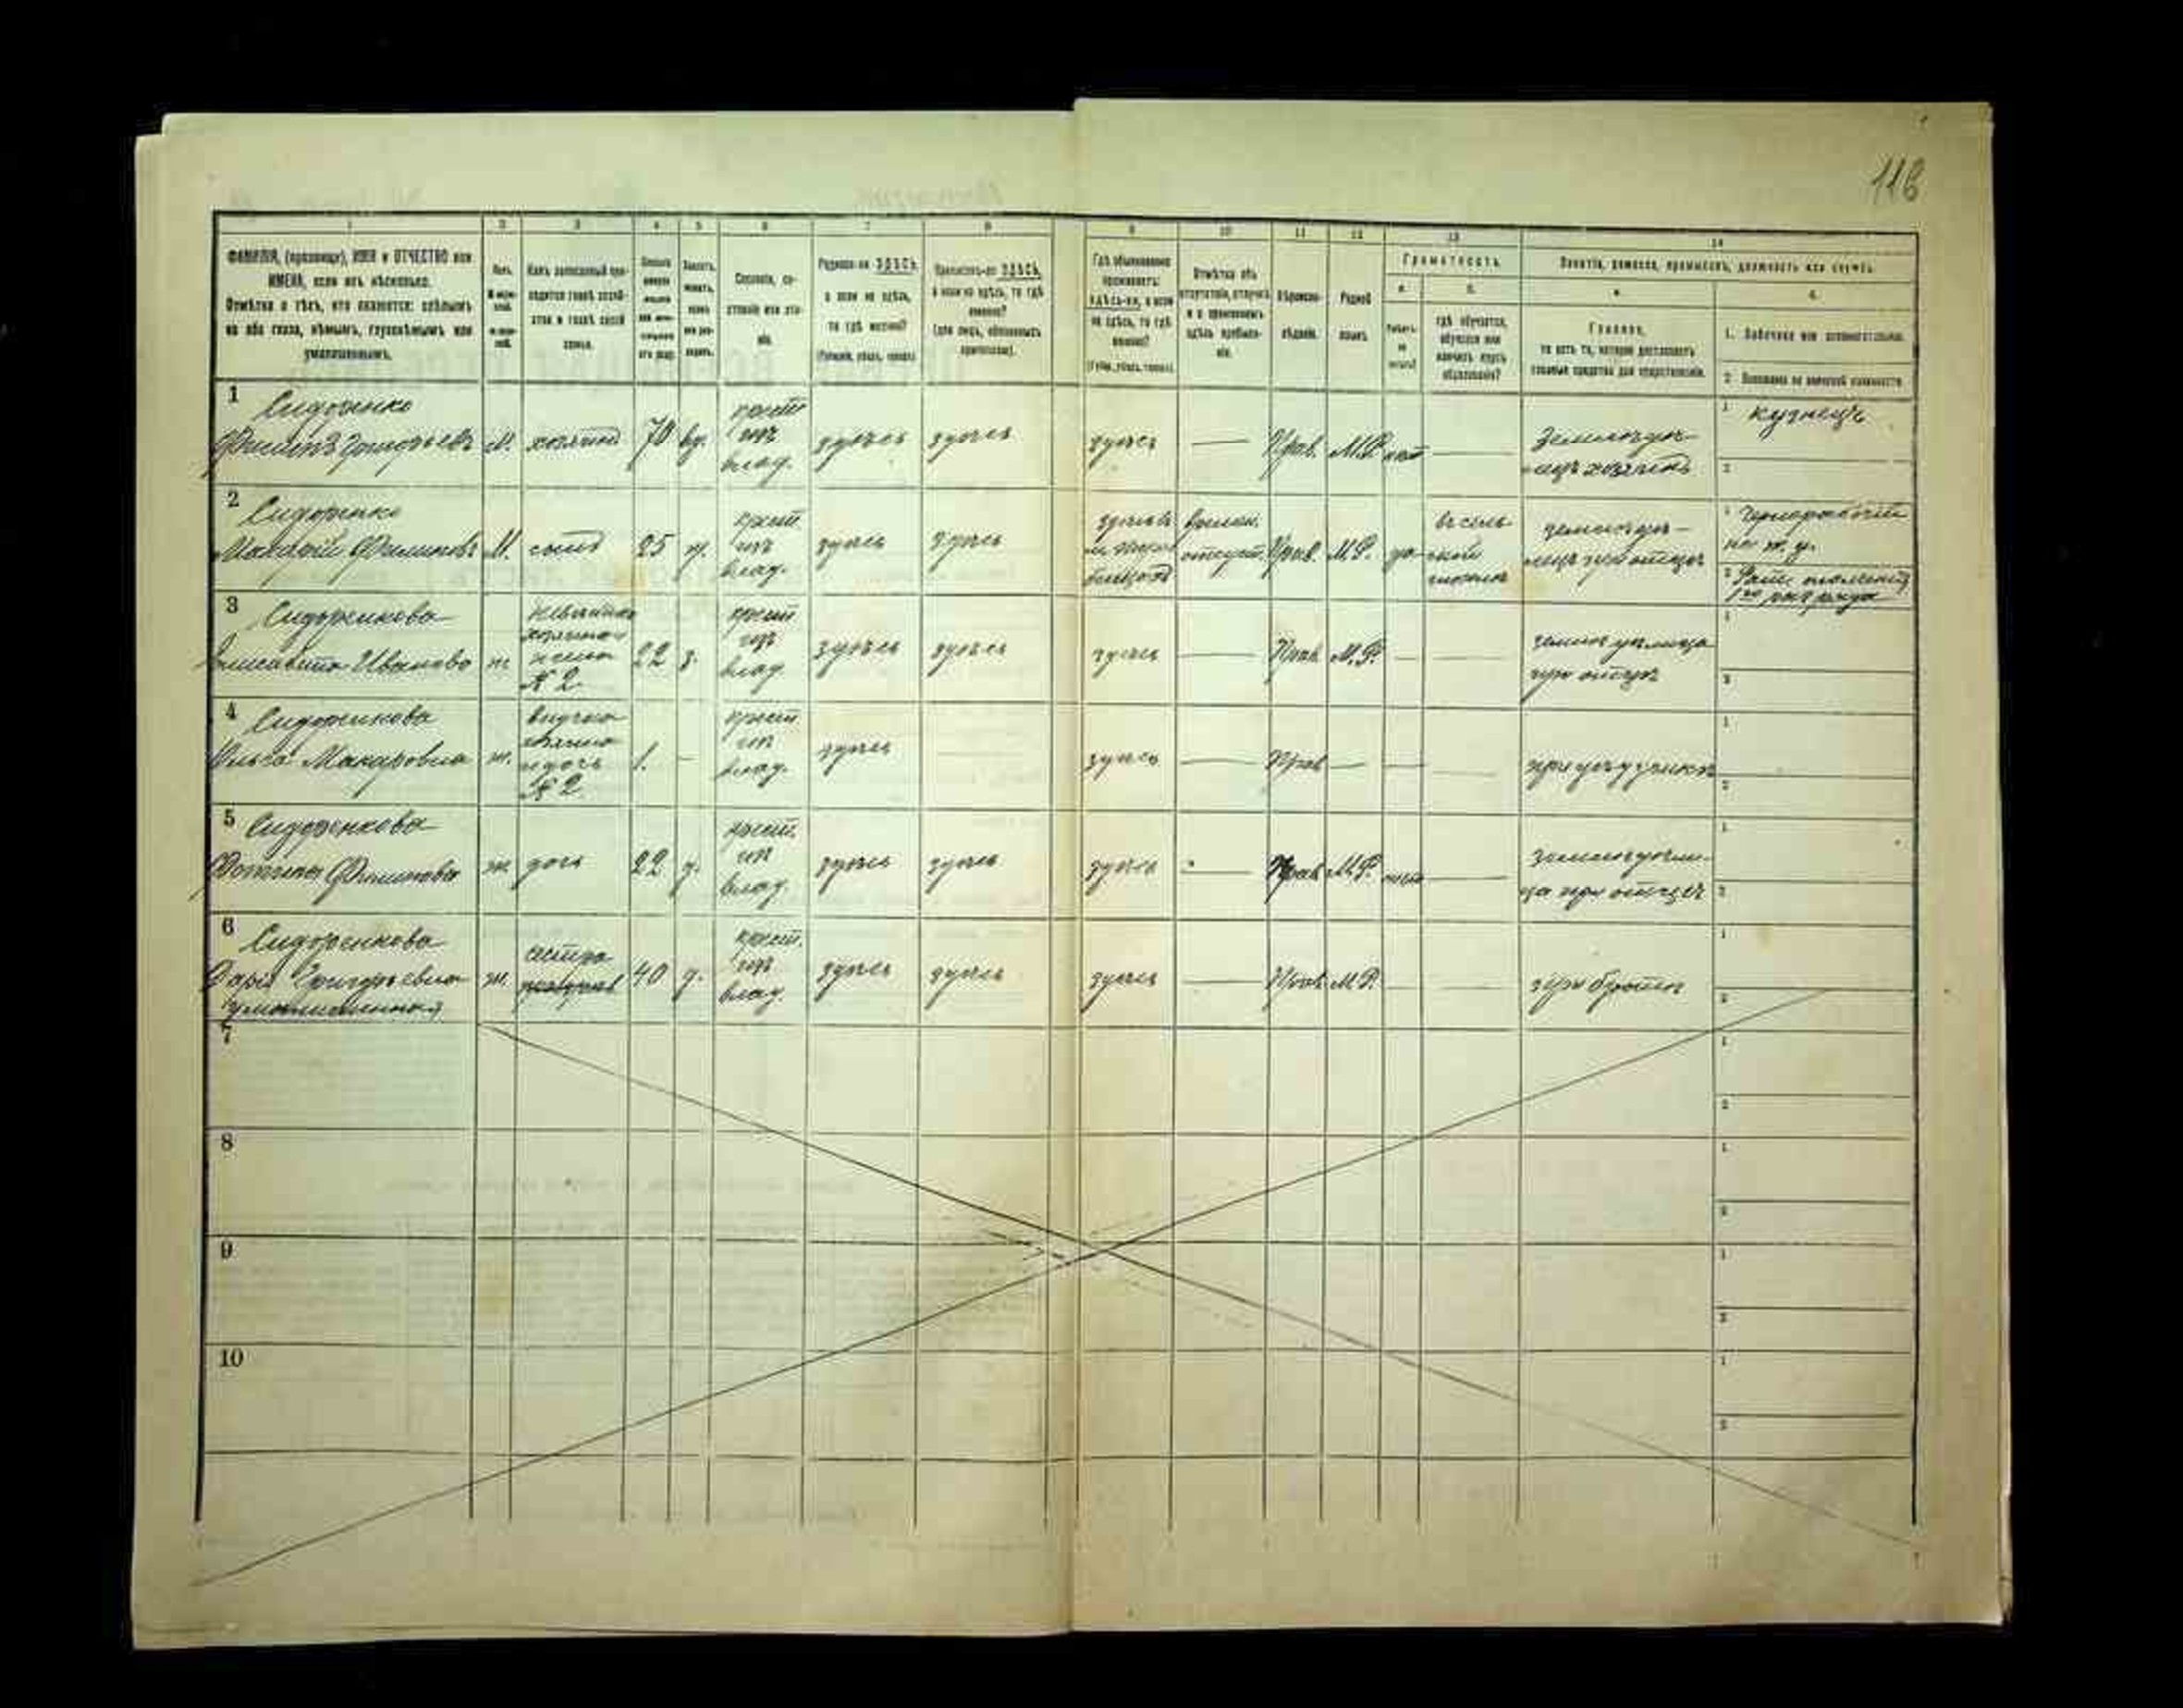 116
1 2 3 4 5 6 7 8 9 10 11 12 13 14
ФАМИЛІЯ, (прозвище), ИМЯ и ОТЧЕСТВО или
ИМЕНА, если ихъ нѣсколько.
Отмѣтка о тѣхъ, кто окажется: слѣпымъ
на оба глаза, нѣмымъ, глухонѣмымъ или
умалишеннымъ.
Полъ.
Сословіе, со-
стояніе или зва-
ніе.
Родился-ли ЗДѢСЬ,
а если не здѣсь,
то гдѣ именно?
(Губернія, уѣздъ, городъ).
Приписанъ-ли ЗДѢСЬ,
а если не здѣсь, то гдѣ
именно?
(для лицъ, обязанныхъ
припискою).
Гдѣ обыкновенно
проживаетъ:
здѣсь-ли, а если
не здѣсь, то гдѣ
именно?
(Губ., уѣздъ, городъ).
Отмѣтка объ
отсутствіи, отлучкѣ
и о временномъ
здѣсь пребыва-
ніи.
Вѣроиспо-
вѣданіе.
Родной
языкъ.
Грамотность.
а. б.
Умѣетъ-
ли
читать?
гдѣ обучается,
обучался или
кончилъ курсъ
образованія?
Занятіе, ремесло, промыселъ, должность или служба.
Главное,
то есть то, которое доставляетъ
главныя средства для существованія.
1. Побочное или вспомогательное.
2. Положеніе по воинской повинности.
1 Сидоренко
Филипъ Григорьевъ М. хозяинъ 70 вд. крест. изъ влад. здѣсь здѣсь здѣсь — Прав. М.Р. нѣт — Земледѣ-
лецъ хозяинъ
1 кузнецъ
2
2 Сидоренко
Макарій Филиповъ М. сынъ 25 ж. крест. изъ влад. здѣсь здѣсь
времен. отсут. Прав. М.Р. да въ сель-
ской
школѣ
земледѣ-
лецъ при отцѣ
1 Чернорабочій
на ж. д.
2 Рат. ополченія
1го разряда
3 Сидоренкова
Елисавета Иванова ж. невѣстка
хозяина
жена
№ 2 22 з. крест. изъ влад. здѣсь здѣсь здѣсь — Прав. М.Р. — — земледѣлица
при отцѣ
1
2
4 Сидоренкова
Ольга Макаровна ж. внучка
хозяина
и дочь
№ 2 1. — крест. изъ влад. здѣсь здѣсь — Прав — — —
при
1
2
5 Сидоренкова
Фотина Филипова ж. дочь 22 д. крест. изъ влад. здѣсь здѣсь здѣсь — Прав. М.Р. нѣт — земледѣли-
ца при отцѣ
1
2
6 Сидоренкова
Дарія Григорьевна
умалишенная ж. сестра 40 д. крест. изъ влад. здѣсь здѣсь здѣсь — Прав. М.Р. — — при братѣ
1
2
7
1
2
8
1
2
9
1
2
10
1
2